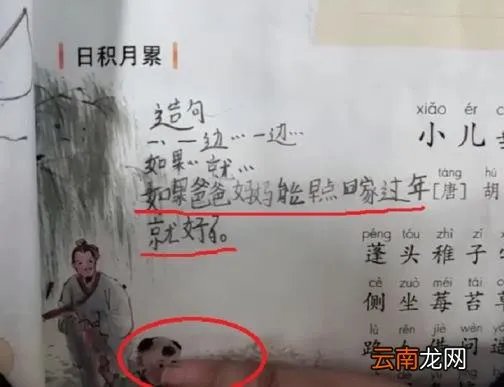 日积月累
造句
…一边…一边…
如果…就…
如果爸爸妈妈能早点回家过年
就好了。
xiǎo ér
小儿
táng hú
[唐] 胡
péng tóu zhì zǐ
蓬头稚子
cè zuò méi tái cǎo
侧坐莓苔草
lù rén jiè wèn yáo
路人借问遥
云南龙网